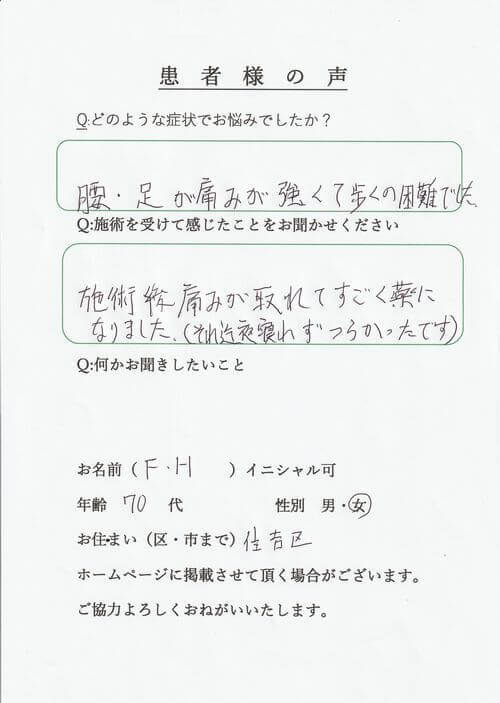 患者様の声
Q:どのような症状でお悩みでしたか？
腰・足が痛みが強くて歩くの困難でした
Q:施術を受けて感じたことをお聞かせください
施術後痛みが取れてすごく薬に
なりました。(それ迄夜寝れずつらかったです)
Q:何かお聞きしたいこと
お名前（F・H）イニシャル可
年齢 70 代 性別 男・女
お住まい（区・市まで）住吉区
ホームページに掲載させて頂く場合がございます。
ご協力よろしくおねがいいたします。